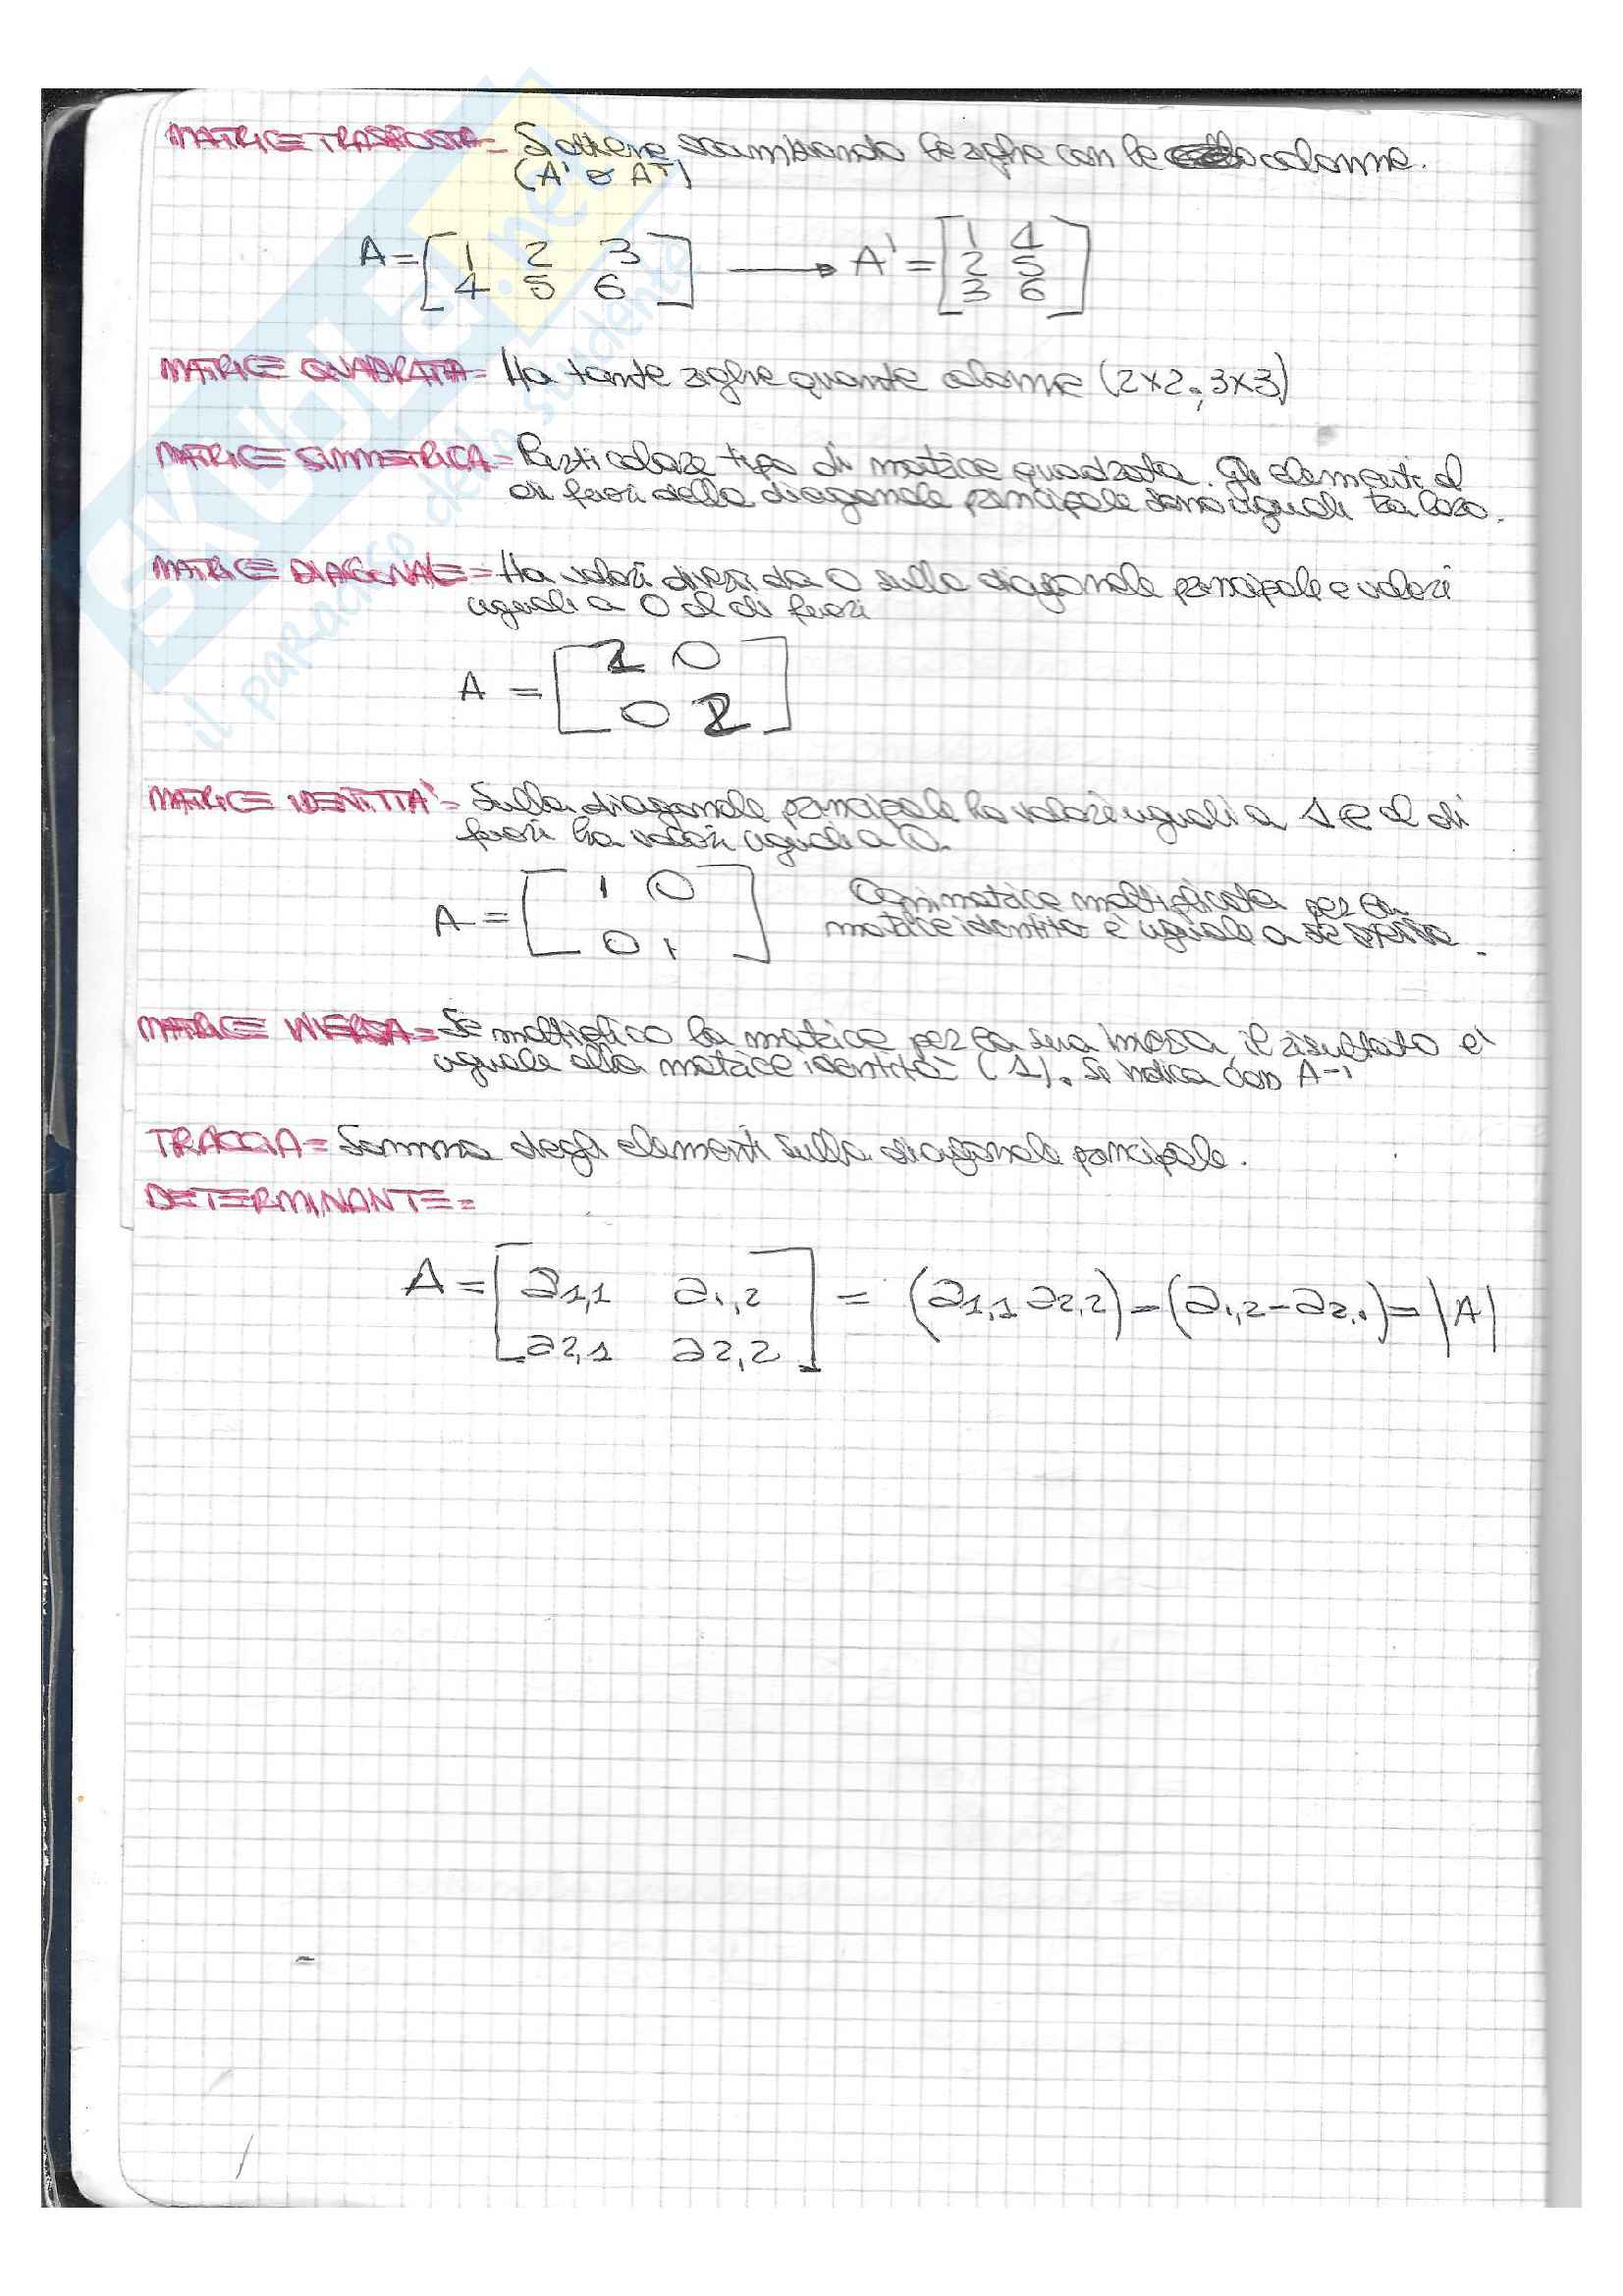 MATRICE TRASPOSTA = Si ottiene scambiando le righe con le colonne.
(A' o Aᵀ)
A = [ 1 2 3 ] → A' = [ 1 4 ]
4 5 6 2 5
3 6
MATRICE QUADRATA = Ha tante righe quante colonne (2x2; 3x3)
MATRICE SIMMETRICA = Particolare tipo di matrice quadrata. Gli elementi al
di fuori della diagonale principale sono uguali tra loro.
MATRICE DIAGONALE = Ha valori diversi da 0 sulla diagonale principale e valori
uguali a 0 al di fuori
A = [ 1 0 ]
0 2
MATRICE IDENTITA' = Sulla diagonale principale ha valori uguali a 1 e al di
fuori ha valori uguali a 0.
A = [ 1 0 ]
0 1
Ogni matrice moltiplicata per la
matrice identità è uguale a se stessa.
MATRICE INVERSA = Se moltiplico la matrice per la sua inversa, il risultato è
uguale alla matrice identità (1). Si indica con A⁻¹
TRACCIA = Somma degli elementi sulla diagonale principale.
DETERMINANTE =
A = [ a1,1 a1,2 ] = (a1,1 a2,2) - (a1,2 - a2,1) = |A|
a2,1 a2,2
SKUOLA.net
il paradiso dello studente